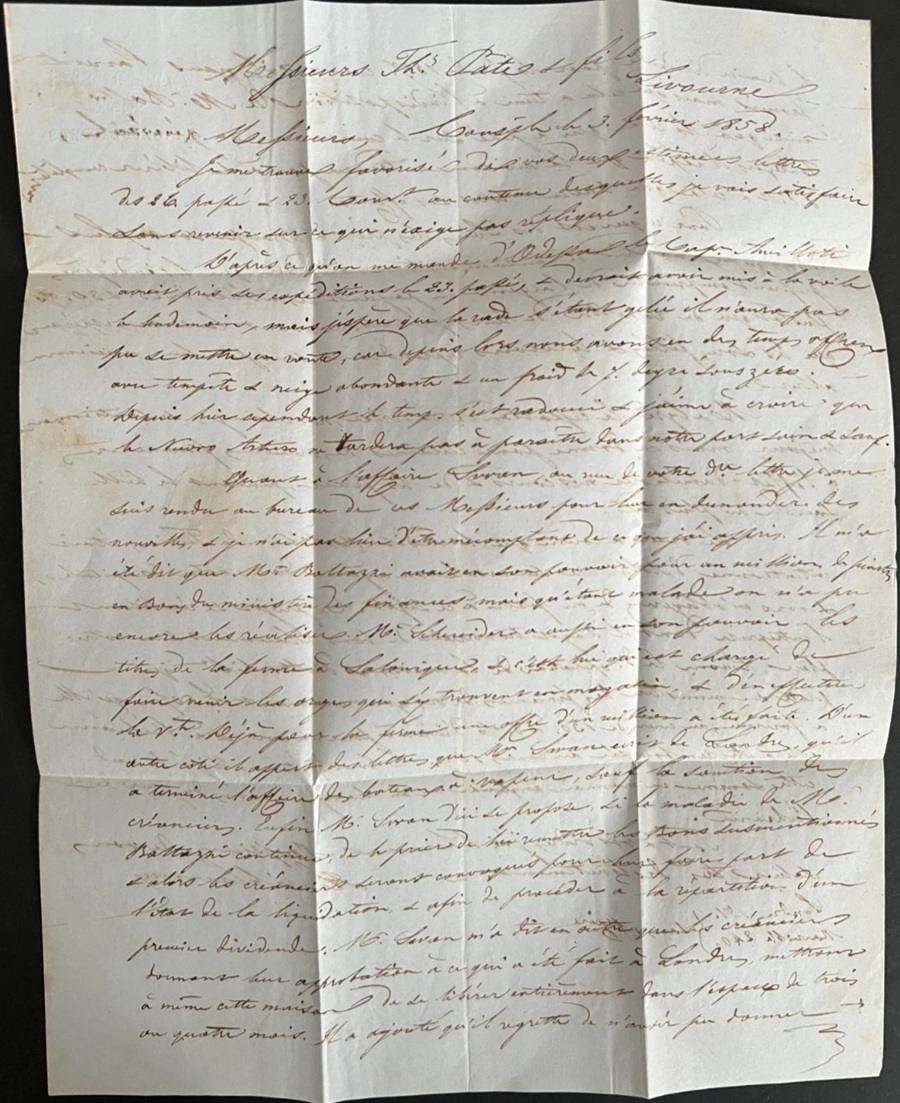 Messieurs Ths Pate & fils
Livourne
Messieurs Const.ple le 3. février 1858.
Je me trouve favorisé des vos deux estimées lettres
des 26 passé & 23. Cour.t au contenu desquelles je vais satisfaire
sans revenir sur ce qui n'exige pas réplique.
D'après ce qu'on me mande d'Odessa le Cap.n
avait pris ses expéditions le 23. passé, & devrait avoir mis à la voile
le lendemain, mais j'espère que la rade s'étant gelée il n'aura pas
pu se mettre en route, car depuis lors nous avons eu des temps affreux
avec tempête & neige abondante & un froid de 7. degré sous zéro.
Depuis hier cependant le temps s'est radouci & j'aime à croire que
le Nuovo Arturo ne tardera pas à paraître dans notre port sain & sauf.
Quant à l'affaire Swan au reçu de votre d.re lettre je me
suis rendu au bureau de ces Messieurs pour leur en demander des
nouvelles, & je n'ai pas lieu d'être mécontent de ce que j'ai appris. Il m'a
été dit que Mr Baltazzi avait en son pouvoir pour un million de piastres
en Bons du ministère des finances, mais qu'étant malade on n'a pu
encore les réaliser. Mr. Schneider a aussi en son pouvoir les
titres de la ferme à Salonique, & c'est lui qui est chargé de
faire venir les orges qui s'y trouvent en magasin, & d'en effectuer
la v.te. Déjà pour la ferme une offre d'un million a été faite. D'un
autre côté il appert des lettres que Mr. Swan écrit de Londres, qu'il
a terminé l'affaire des bateaux à vapeur, sauf la sanction des
créanciers. Enfin Mr. Swan d'ici se propose, si la maladie de Mr.
Baltazzi continue, de le prier de lui remettre les Bons susmentionnés
& alors les créanciers seront convoqués pour leur faire part de
l'état de la liquidation, & afin de procéder à la répartition d'un
premier dividende. Mr. Swan m'a dit en outre que les créanciers
donnant leur approbation à ce qui a été fait à Londres, mettront
à même cette maison de se libérer entièrement dans l'espace de trois
ou quatre mois. Il a ajouté qu'il regrette de n'avoir pu donner